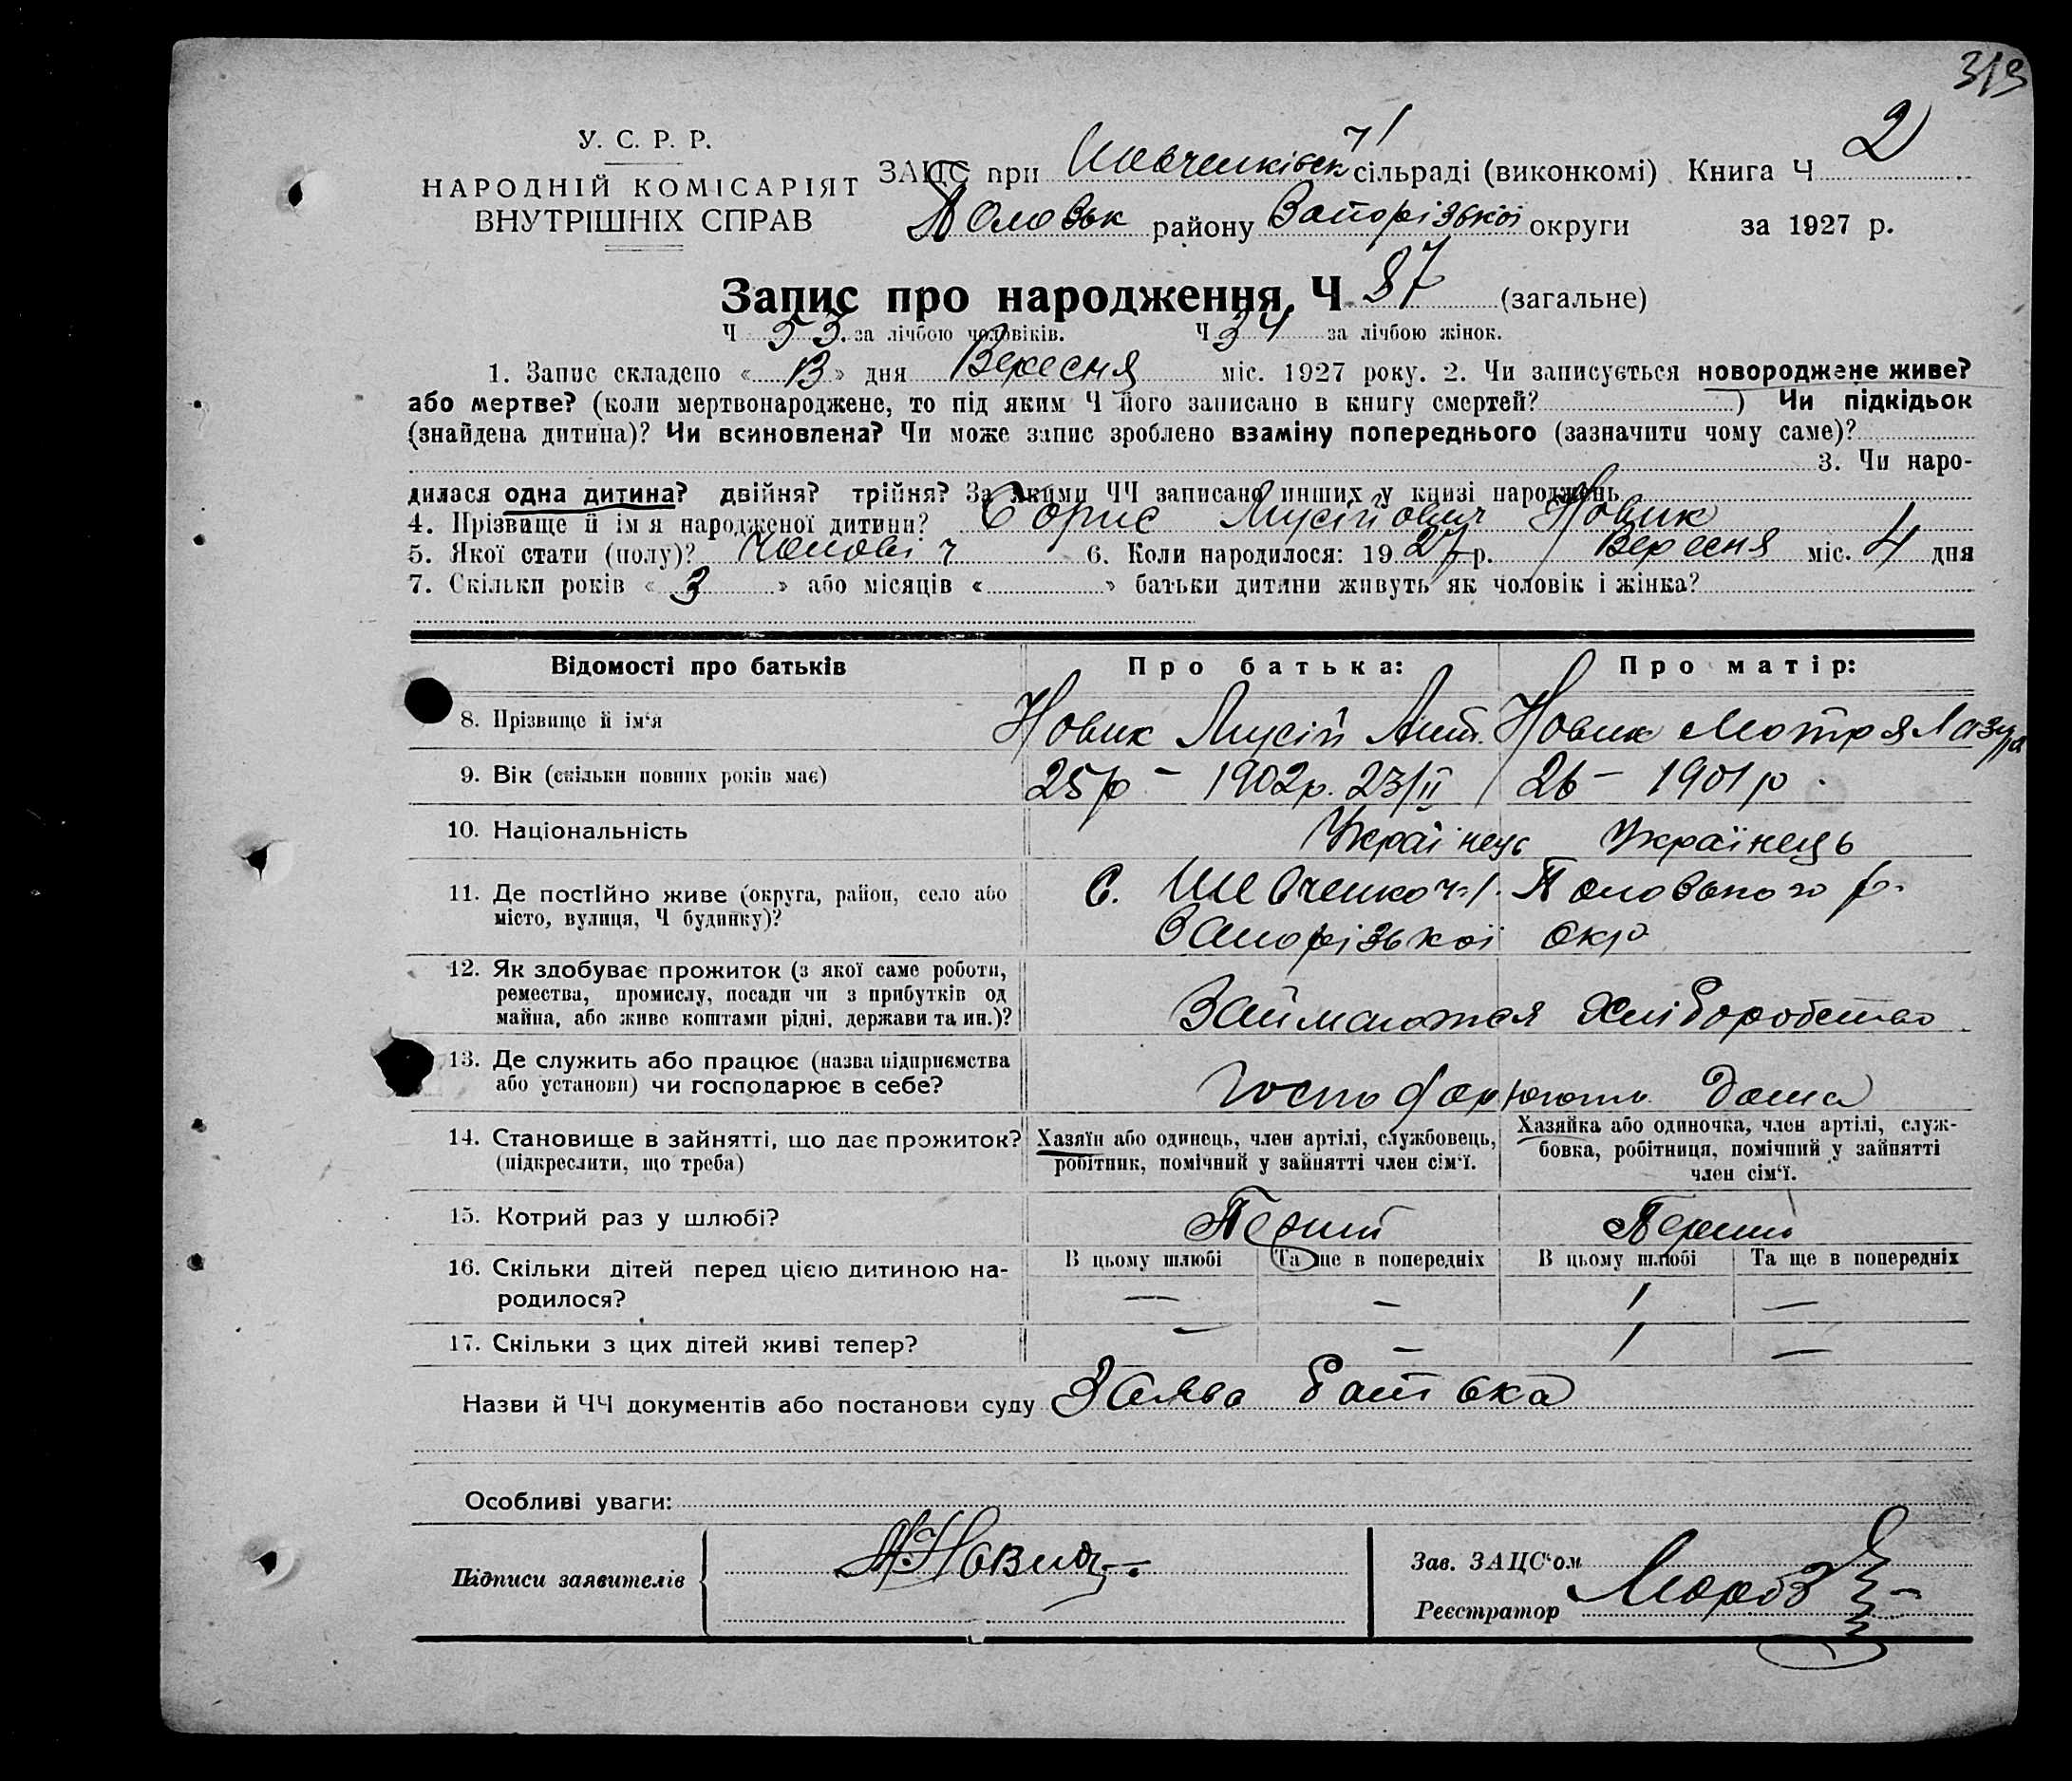 313
У. С. Р. Р.
НАРОДНІЙ КОМІСАРІЯТ
ВНУТРІШНІХ СПРАВ
ЗАЦС при Шевченківськ ч/1 сільраді (виконкомі) Книга Ч 2
Половьк району Запорізької округи за 1927 р.
Запис про народження, Ч 87 (загальне)
Ч 53 за лічбою чоловіків. Ч 34 за лічбою жінок.
1. Запис складено « » дня Вересня міс. 1927 року. 2. Чи записується новороджене живе?
або мертве? (коли мертвонароджене, то під яким Ч його записано в книгу смертей? ) Чи підкідьок
(знайдена дитина)? Чи всиновлена? Чи може запис зроблено взаміну попереднього (зазначити чому саме)?
3. Чи наро-
дилася одна дитина? двійня? трійня? За якими ЧЧ записано инших у книзі народжень
4. Прізвище й ім'я народженої дитини? Борис Мусійович Новик
5. Якої стати (полу)? Чолові ч 6. Коли народилося: 1927 р. Вересня міс. 4 дня
7. Скільки років « 3 » або місяців « » батьки дитини живуть як чоловік і жінка?
Відомості про батьків Про батька: Про матір:
8. Прізвище й ім'я Новик Мусій Ант. Новик Мотря Лазура
9. Вік (скільки повних років має) 25 р – 1902 р. 23/II 26 – 1901 р
10. Національність Українець Українець
11. Де постійно живе (округа, район, село або С. Шевченко ч-1. Половького р.
місто, вулиця, Ч будинку)? Запорізької окр
12. Як здобуває прожиток (з якої саме роботи,
ремества, промислу, посади чи з прибутків од Займаються хліборобство
майна, або живе коштами рідні, держави та ин.)?
13. Де служить або працює (назва підприємства
або установи) чи господарює в себе? Господарюють дома
14. Становище в зайнятті, що дає прожиток? Хазяїн або одинець, член артілі, службовець, Хазяйка або одиночка, член артілі, служ-
(підкреслити, що треба) робітник, помічний у зайнятті член сім'ї. бовка, робітниця, помічний у зайнятті
член сім'ї.
15. Котрий раз у шлюбі? Перший Перший
16. Скільки дітей перед цією дитиною на- В цьому шлюбі Та ще в попередніх В цьому шлюбі Та ще в попередніх
родилося? — – 1 —
17. Скільки з цих дітей живі тепер? – – 1 —
Назви й ЧЧ документів або постанови суду Заява батька
Особливі уваги:
Підписи заявителів М Новик
Зав. ЗАЦС'ом
Реєстратор Мороз